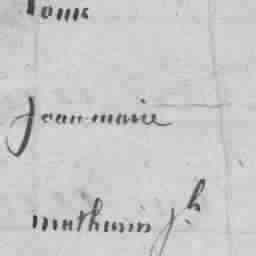 Jean marie
mathurin jh